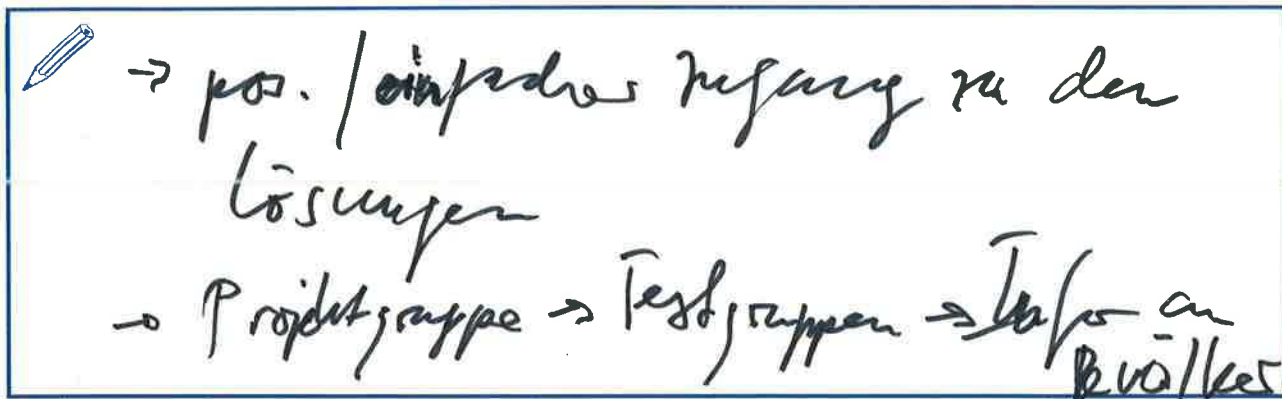 → pos. / einfacher Zugang zu den
Lösungen
→ Projektgruppe → Testgruppen → Info an
Bevölker